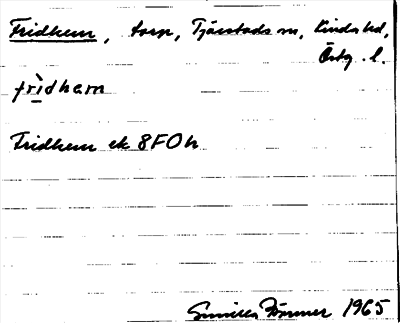 Fridhem, torp, Tjärstads sn, Kinda hd,
Östg. l.
frìdham
Fridhem ek 8F0h
Gunilla 1965